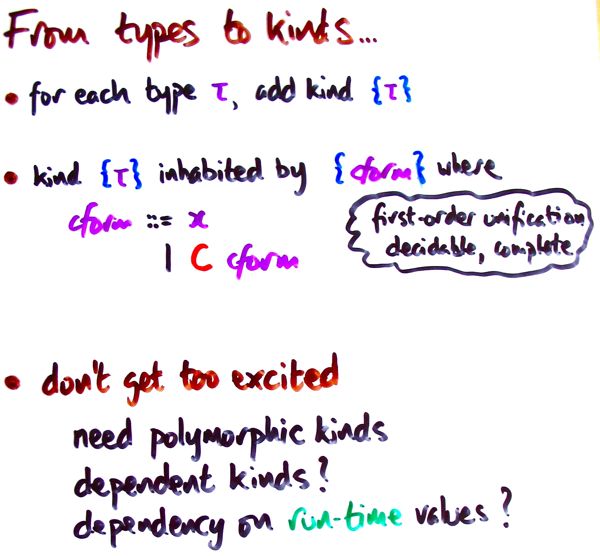 From types to kinds...
• for each type τ, add kind {τ}
• kind {τ} inhabited by {cform} where
cform ::= x
| C cform
first-order unification
decidable, complete
• don't get too excited
need polymorphic kinds
dependent kinds?
dependency on run-time values?